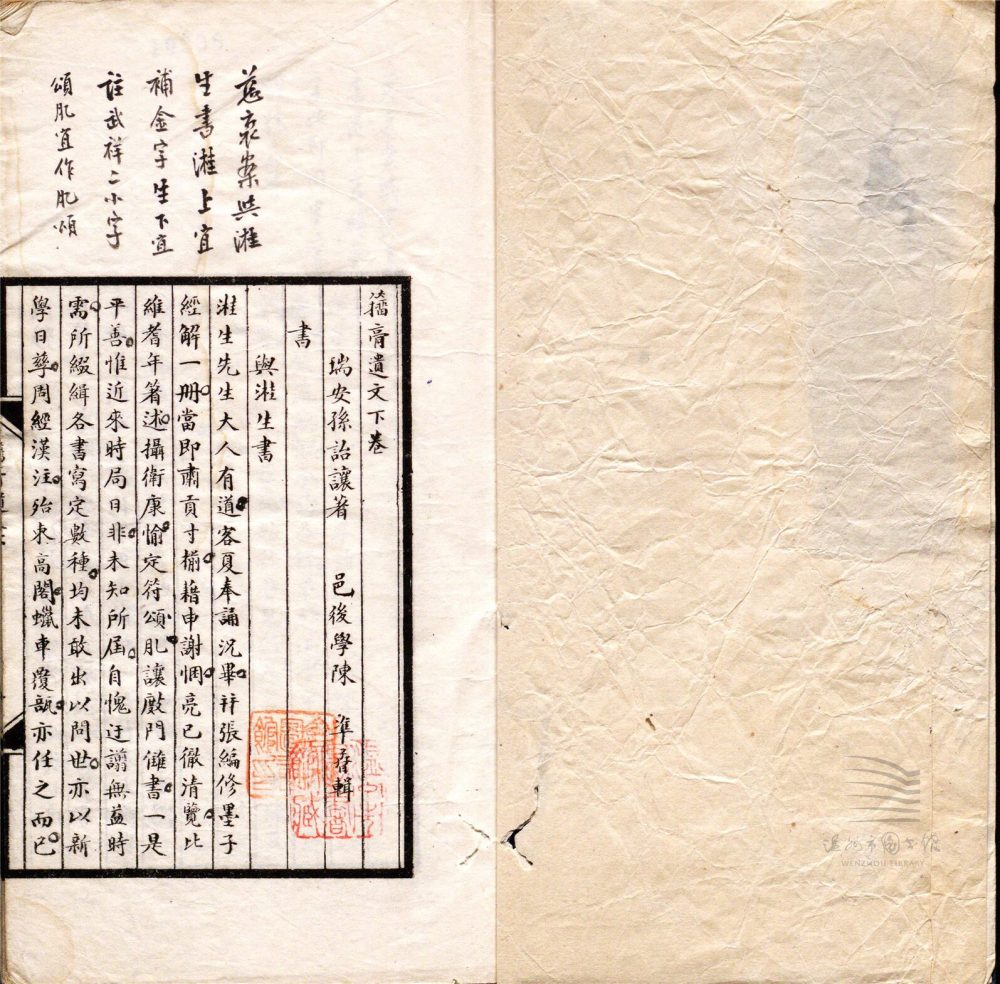 慈哀案與溎
生書溎上宜
補金字生下宜
註武祥二小字
頌肊宜作肊頌
籀膏遺文下卷
瑞安孫詒讓著 邑後學陳 準 輯
書
與溎生書
溎生先生大人有道客夏奉誦況畢并張編修墨子
經解一冊當即肅貢寸椾藉申謝悃亮已徹清覽比
維耆年著述攝衛康愉定符頌肊讓廢門讎書一是
平善惟近來時局日非未知所屆自愧迂謭無益時
需所綴緝各書寫定數種均未敢出以問世亦以新
學日孳周經漢注殆束高閣蠟車覆瓿亦任之而已
溫州市图书馆
WENZHOU LIBRARY